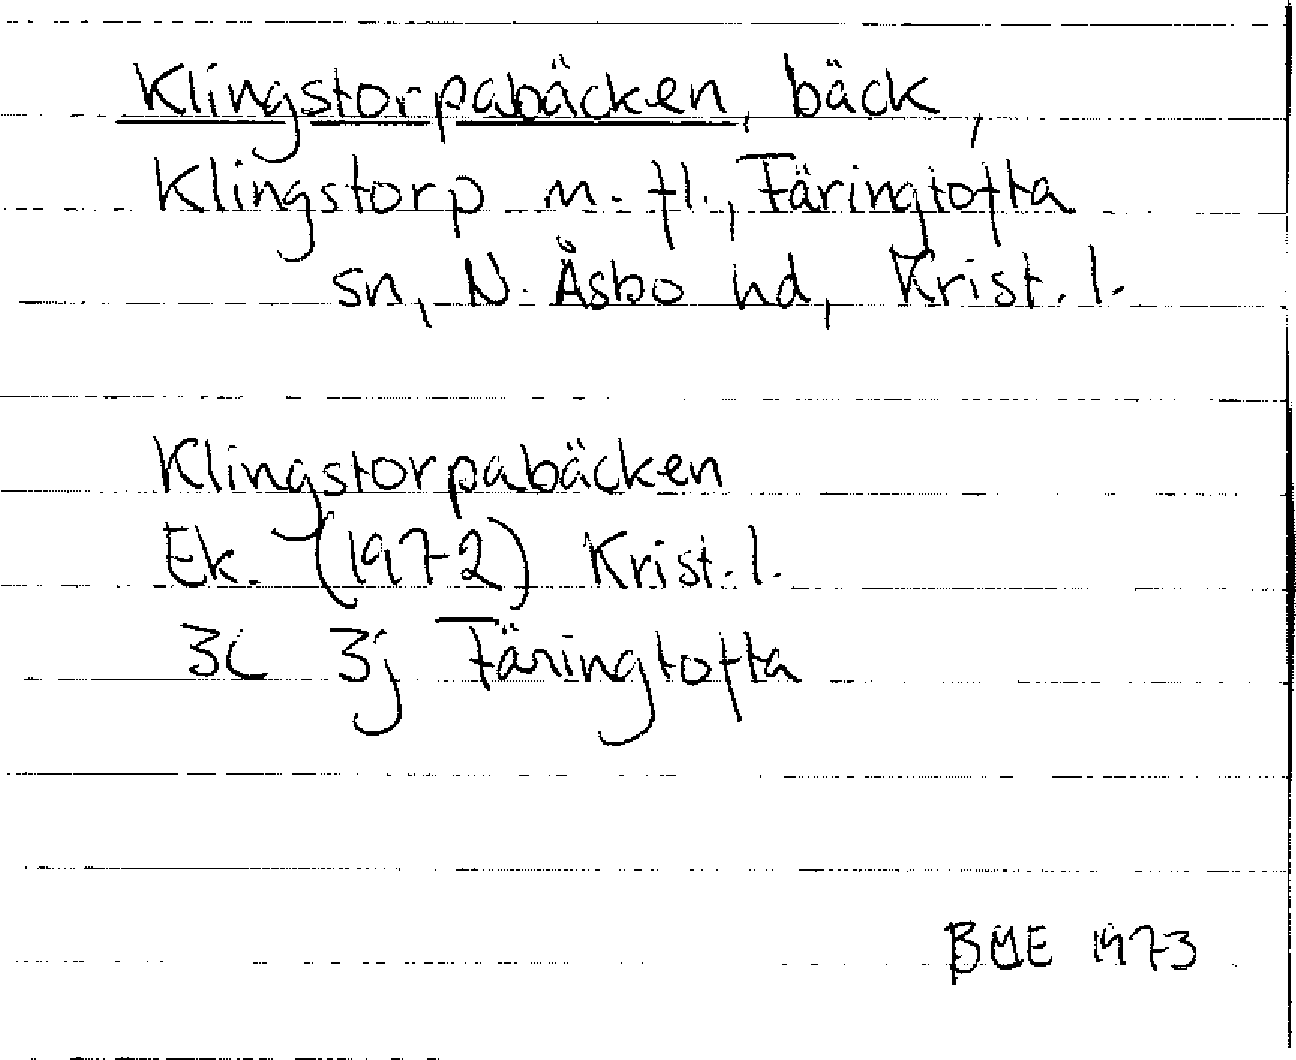 Klingstorpabäcken, bäck,
Klingstorp m. fl., Färingtofta
sn, N. Åsbo hd, Krist. l.
Klingstorpabäcken
Ek. (1972) Krist. l.
3C 3j Färingtofta
BME 1973